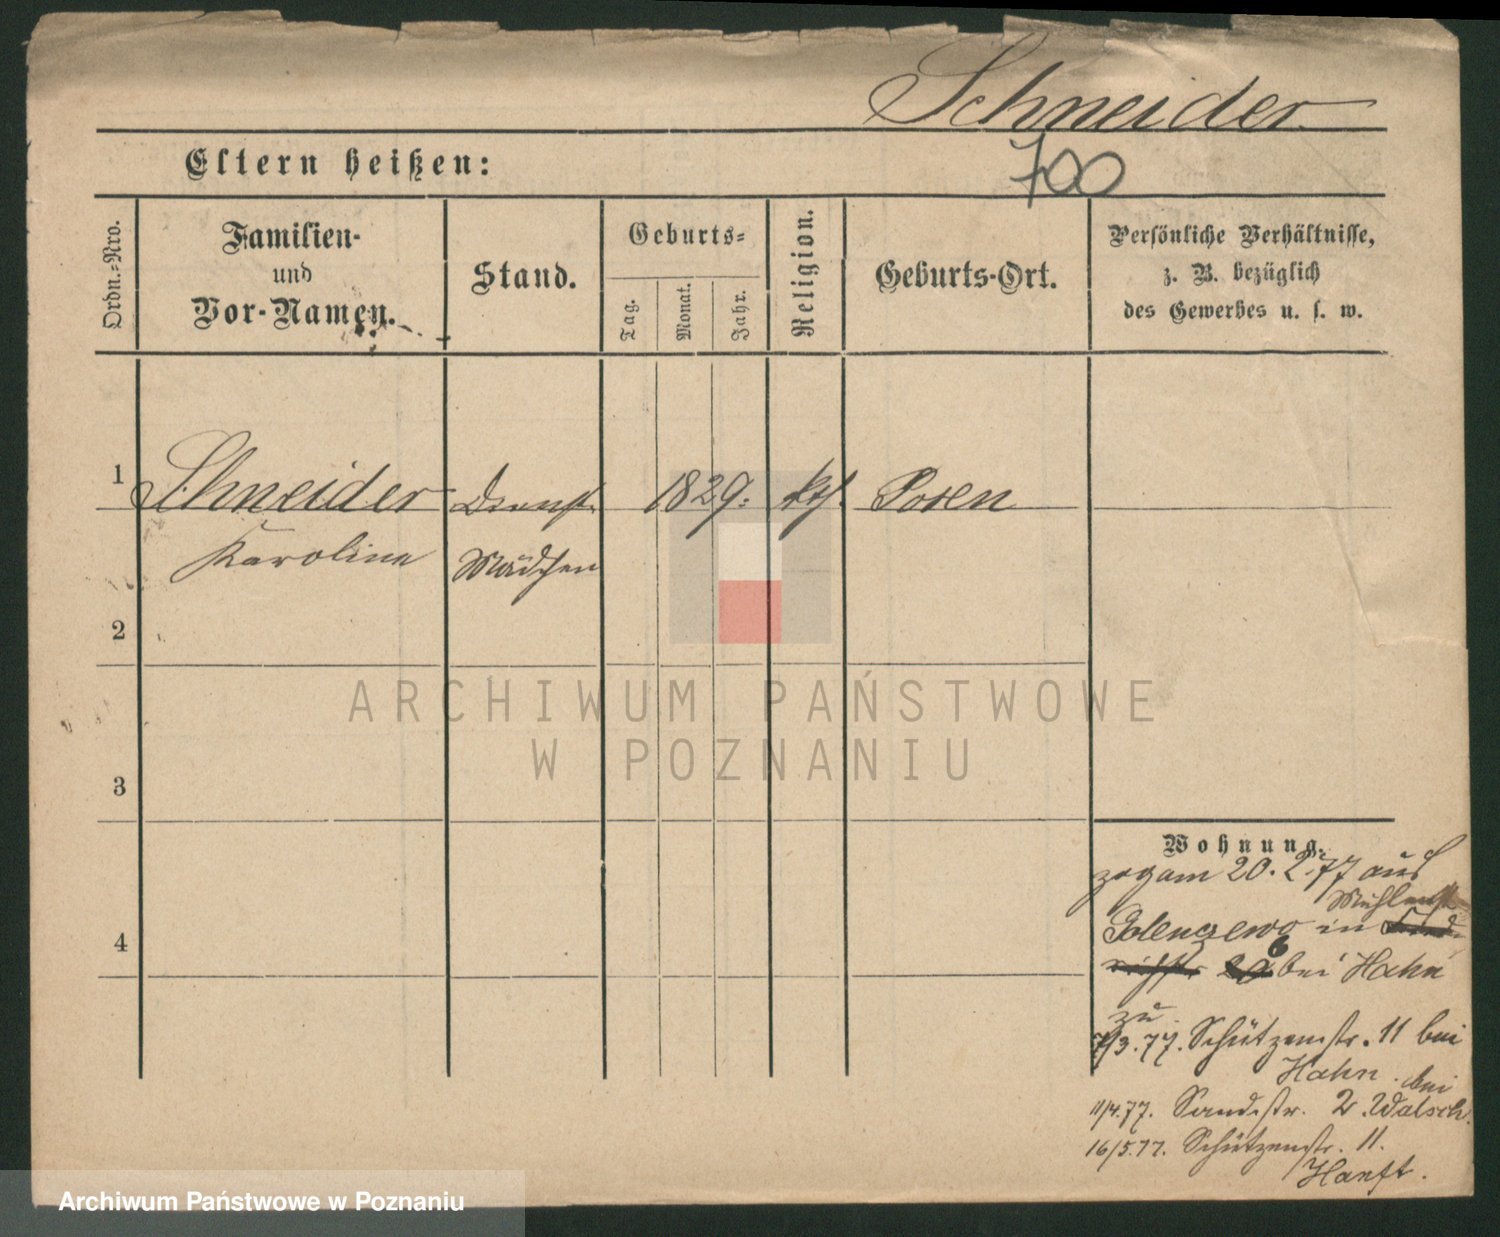 Schneider
700
Eltern heißen:
Ordn.-Nro.
Familien-
und
Vor-Namen.
Stand.
Geburts-
Tag.
Monat.
Jahr.
Religion.
Geburts-Ort.
Persönliche Verhältnisse,
z. B. bezüglich
des Gewerbes u. s. w.
1
Schneider Dienst 1829. kth. Posen
Karolina Mädchen
2
3
4
ARCHIWUM PAŃSTWOWE
W POZNANIU
Wohnung.
zog am 20.2.77 aus
Mühlenstr
Golenczewo in
6 bei Hahn
zu.
7/3.77. Schützenstr. 11 bei
Hahn.
11/4.77. Sandstr. 2. bei Walsch.
16/5.77. Schützenstr. 11.
Hanft.
Archiwum Państwowe w Poznaniu